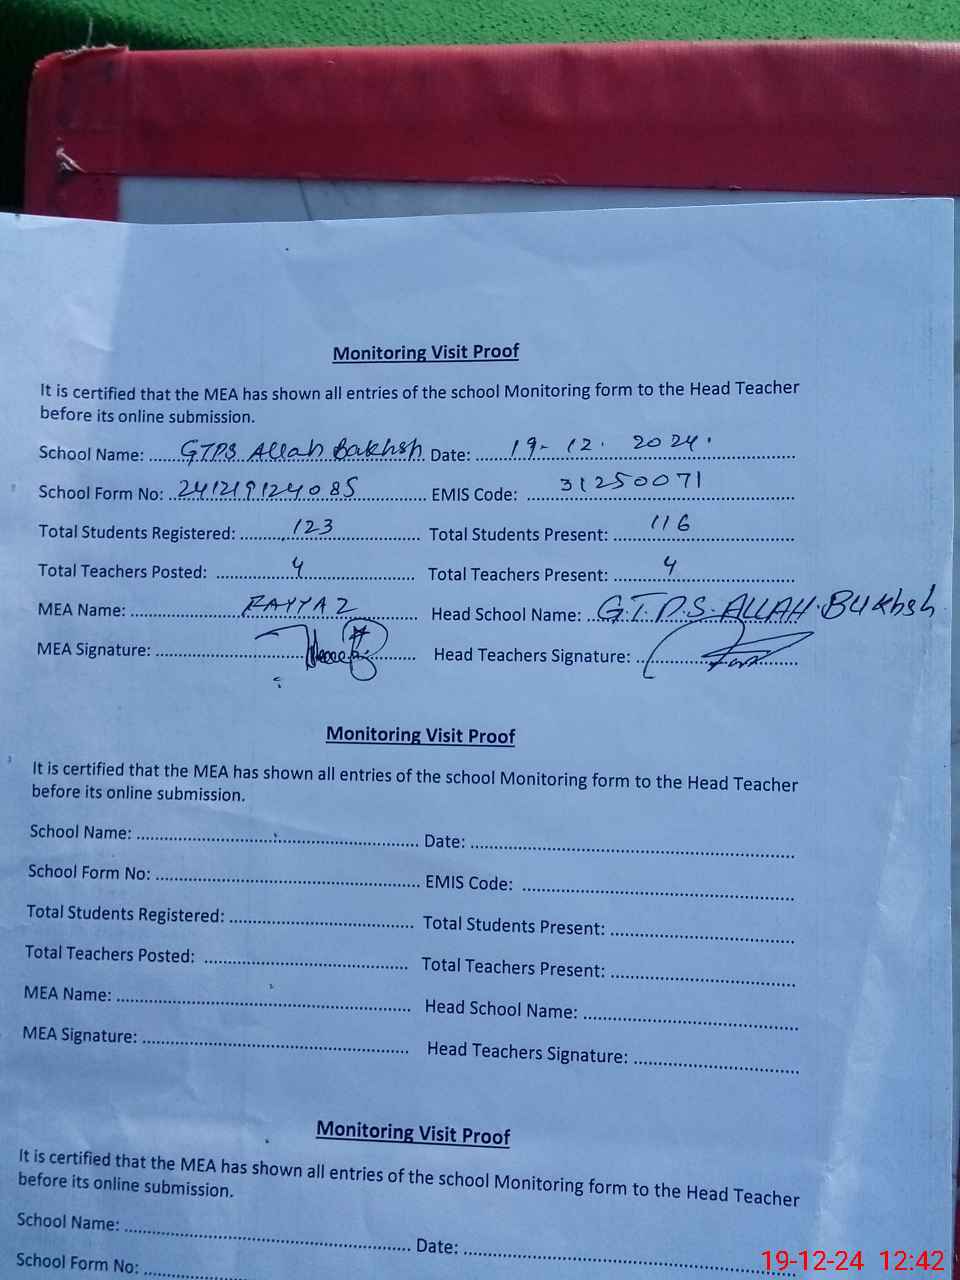 Monitoring Visit Proof
It is certified that the MEA has shown all entries of the school Monitoring form to the Head Teacher
before its online submission.
School Name: ...... GTPS Allah Bakhsh Date: ...... 19-12.2024.
School Form No: 241219124085 ...... EMIS Code: ...... 31250071
Total Students Registered: ...... 123 ...... Total Students Present: ...... 116
Total Teachers Posted: ...... 4 ...... Total Teachers Present: ...... 4
MEA Name: ...... FAYYAZ ...... Head School Name: ... G.T.P.S. ALLAH. BUKhsh
MEA Signature: ...... Head Teachers Signature: ......
Monitoring Visit Proof
It is certified that the MEA has shown all entries of the school Monitoring form to the Head Teacher
before its online submission.
School Name: ...... Date: ......
School Form No: ...... EMIS Code: ......
Total Students Registered: ...... Total Students Present: ......
Total Teachers Posted: ...... Total Teachers Present: ......
MEA Name: ...... Head School Name: ......
MEA Signature: ...... Head Teachers Signature: ......
Monitoring Visit Proof
It is certified that the MEA has shown all entries of the school Monitoring form to the Head Teacher
before its online submission.
School Name: ...... Date: ......
School Form No: ......
19-12-24 12:42